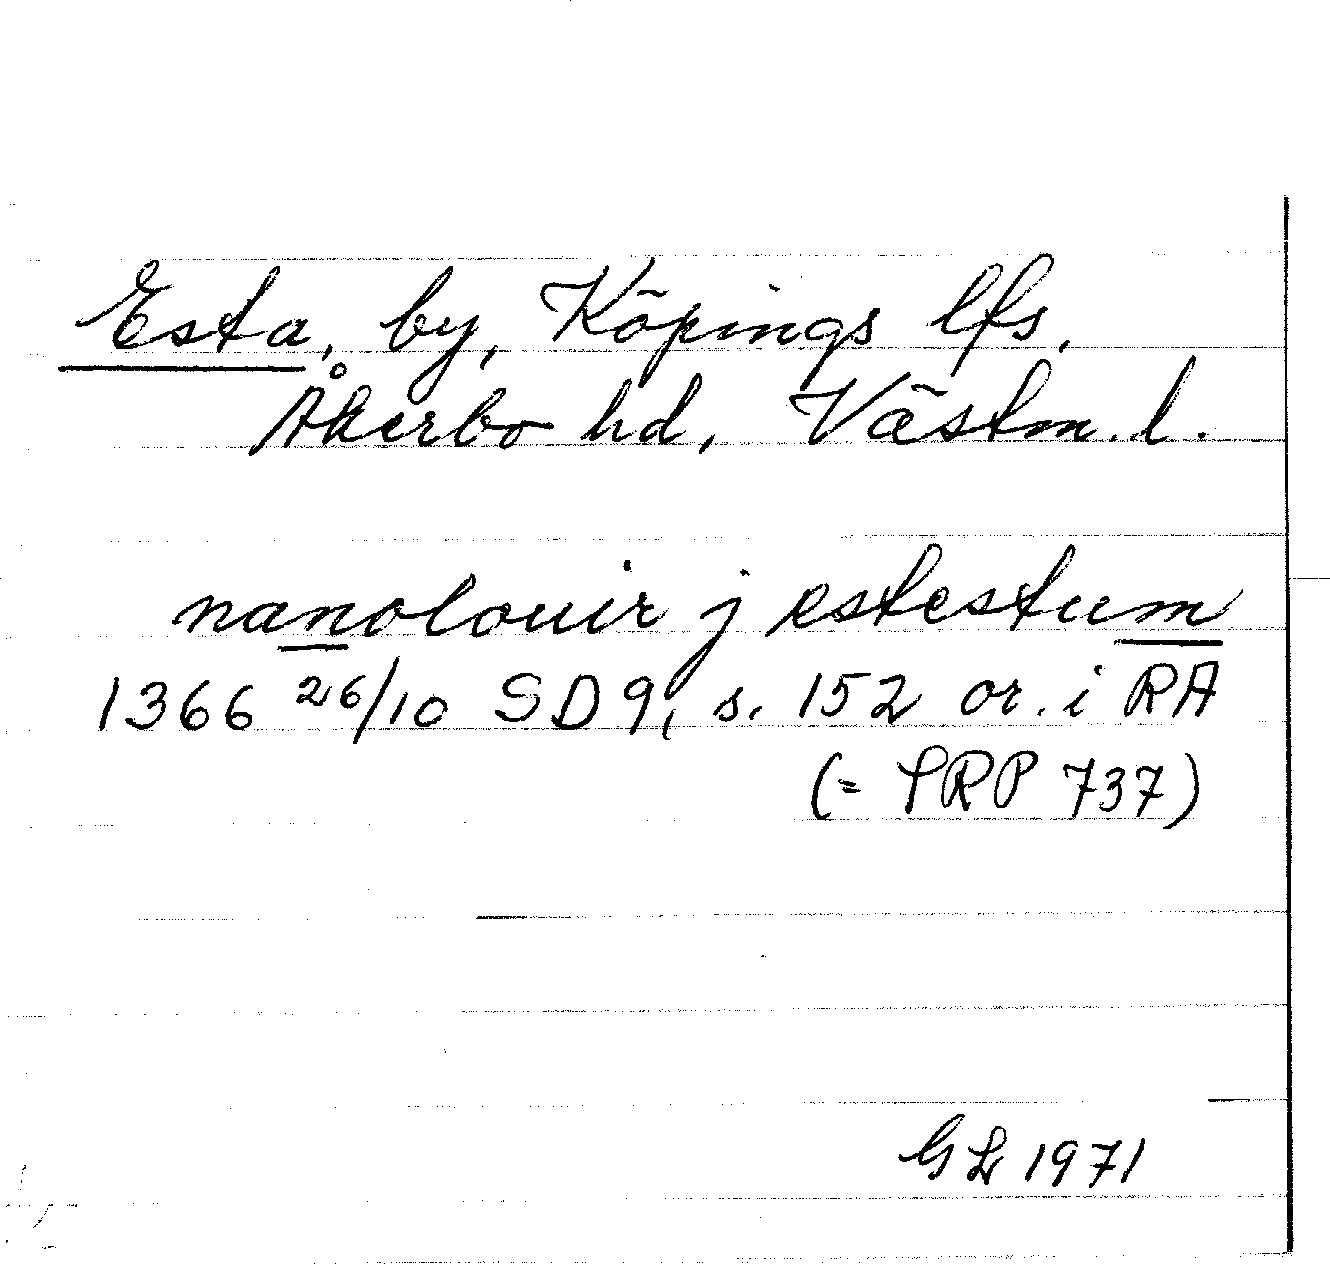 Esta, by, Köpings lfs,
Åkerbo hd, Västm. l.
nanolouir j estestum
1366 26/10 SD 9, s. 152 or. i RA
(= SRP 737)
GL 1971